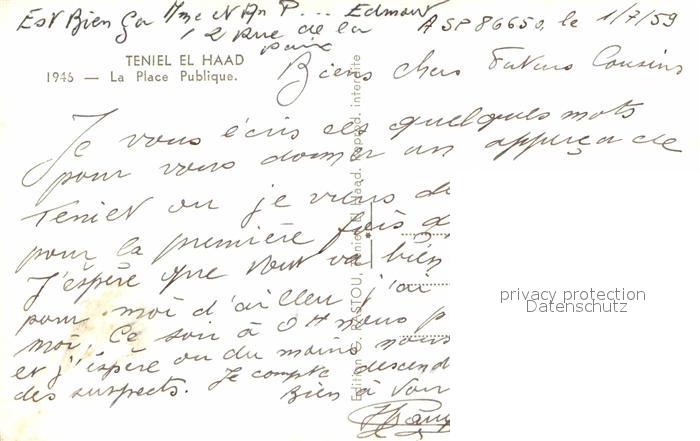 Est Bien ça Mme et Mr P... Edmond
12 Rue de la
paix
ASP 86650, le 1/7/59
TENIEL EL HAAD
1946 — La Place Publique.
Biens chers Futurs Cousins
Je vous écris ces quelques mots
pour vous donner un apperçu de
Teniet ou je viens de
pour la première fois
J'espère que tout va bien
pour moi d'ailleur j'ai
moi. Ce soir à 0H nous p
et j'espère ou du moins nous
des suspects. Je compte descend
Bien à Vou
Edition G. RASTOU, Teniet El Haad. Reprod. interdite
privacy protection
Datenschutz